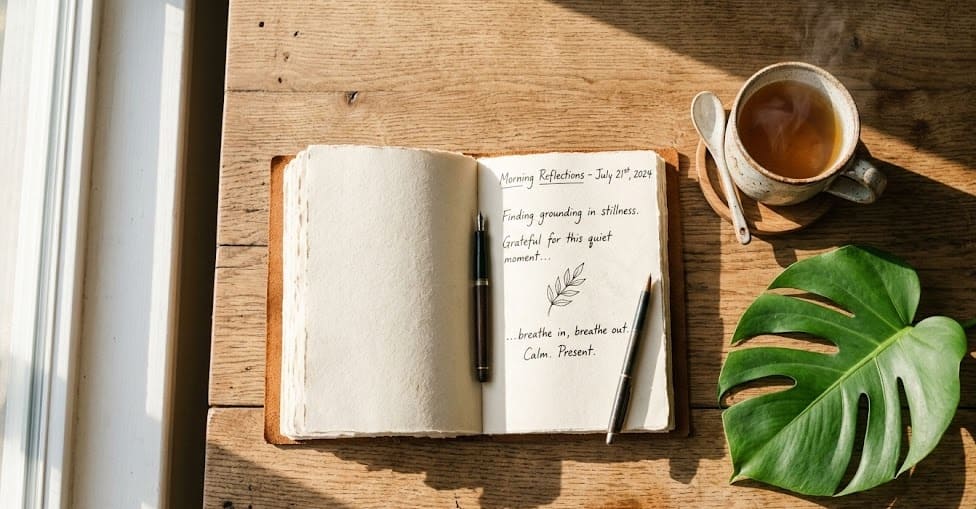 Morning Reflections - July 21st, 2024
Finding grounding in stillness.
Grateful for this quiet
moment...
...breathe in, breathe out.
Calm. Present.